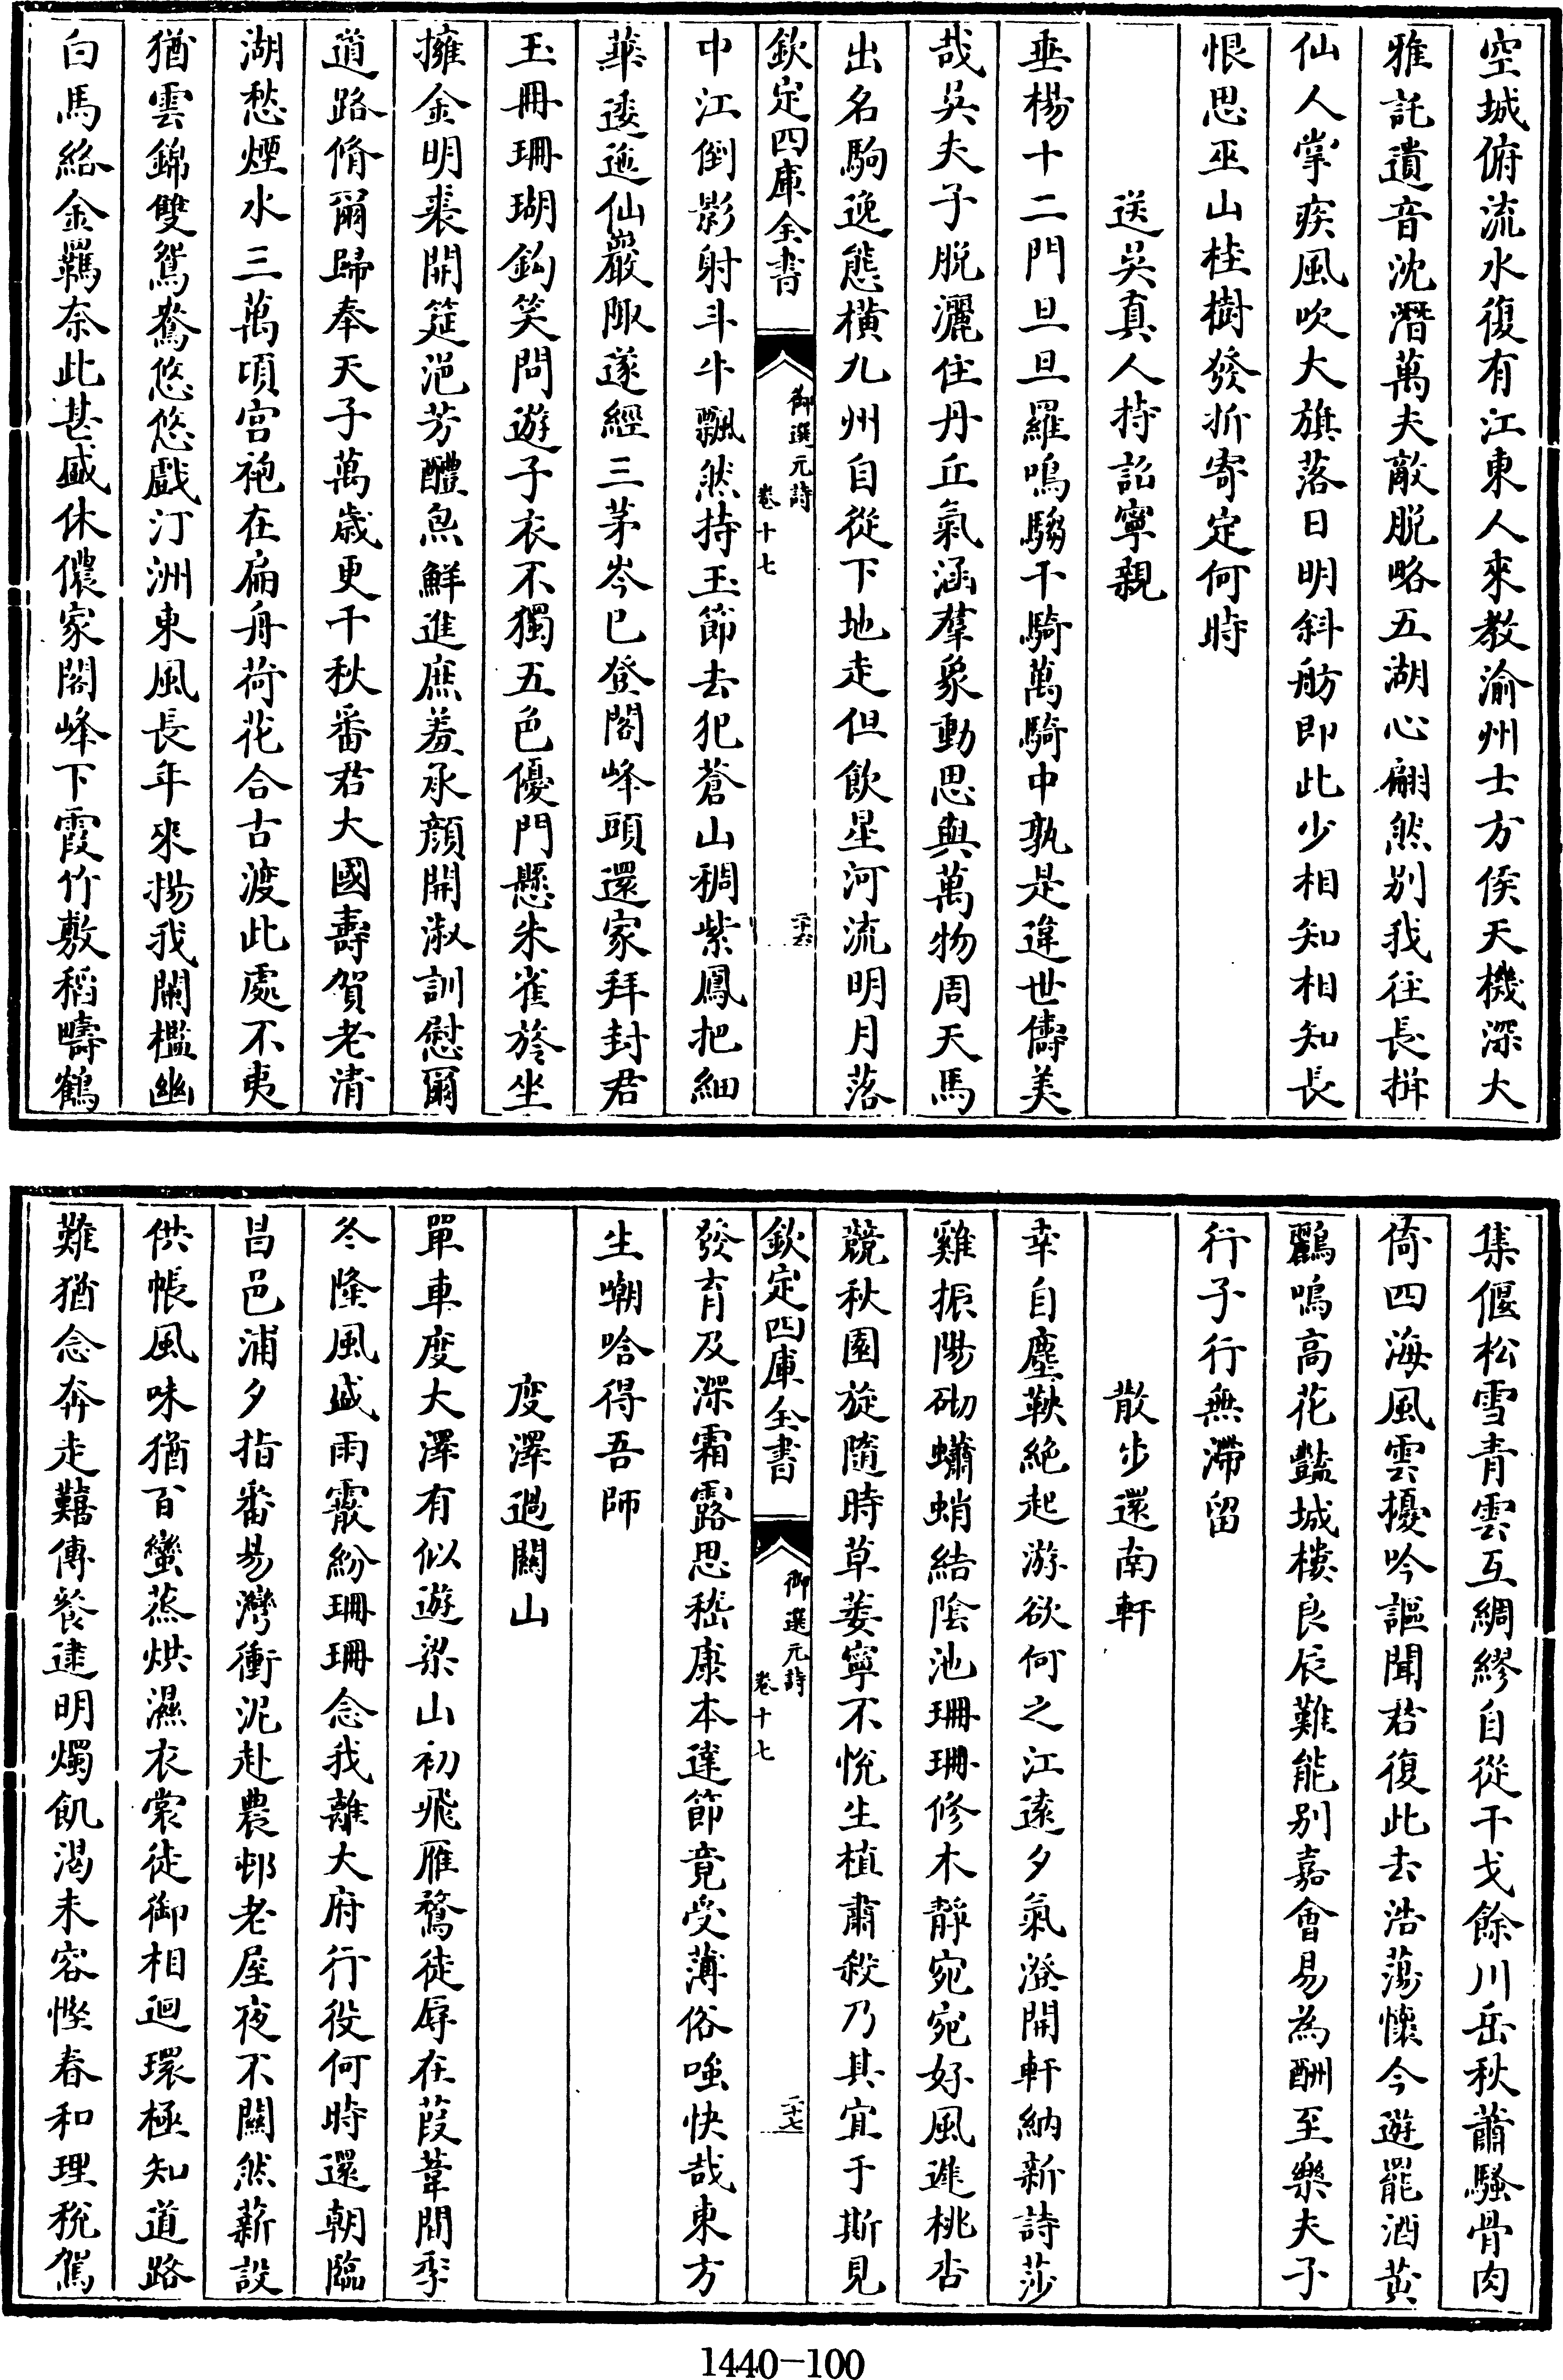 空城俯流水復有江東人來教渝州士方侯天機深大
雅託遺音沈潛萬夫敵脫略五湖心翩然别我往長揖
仙人掌疾風吹大旗落日明斜舫即此少相知相知長
恨思巫山桂樹發折寄定何時
送吳真人持詔寧親
垂楊十二門旦旦羅鳴騶千騎萬騎中孰是違世儔美
哉吳夫子脫灑住丹丘氣涵羣象動思與萬物周天馬
出名駒逸態横九州自從下地走但飲星河流明月落
欽定四庫全書
御選元詩
卷十七
二十六
中江倒影射斗牛飄然持玉節去犯蒼山稠紫鳳把細
藥逶迤仙巖陬遂經三茅岑已登閣峰頭還家拜封君
玉冊珊瑚鈎笑問遊子衣不獨五色優門懸朱雀旂坐
擁金明裘開筵浥芳醴魚鮮進庶羞承顔開淑訓慰爾
道路脩爾歸奉天子萬歲更千秋番君大國壽賀老清
湖愁煙水三萬頃宫袍在扁舟荷花合古渡此處不夷
猶雲錦雙鴛鴦悠悠戲汀洲東風長年來揚我闌檻幽
白馬絡金羈奈此甚盛休儂家閣峰下霞竹敷稻疇鶴
集偃松雪青雲互綢繆自從干戈餘川岳秋蕭騷骨肉
倚四海風雲擾吟謳聞君復此去浩蕩懷今遊罷酒黄
鸝鳴高花豔城樓良辰難能别嘉會易為酬至樂夫子
行子行無滯留
散步還南軒
幸自塵鞅絶起游欲何之江遠夕氣澄開軒納新詩莎
雞振陽砌蠨蛸結陰池珊珊修木静宛宛好風進桃杏
競秋園旋隨時草萎寧不悦生植肅殺乃其宜于斯見
欽定四庫全書
御選元詩
卷十七
二十七
發育及深霜露思嵇康本達節竟受薄俗嗤快哉東方
生嘲唅得吾師
度澤過關山
單車度大澤有似遊梁山初飛雁鶩徒辱在葭葦間季
冬隆風盛雨霰紛珊珊念我離大府行役何時還朝臨
昌邑浦夕指番易灣衝泥赴農邨老屋夜不關然薪設
供帳風味猶百蠻蒸烘濕衣裳徒御相迴環極知道路
難猶念奔走艱傳餐逮明燭飢渴未容慳春和理稅駕